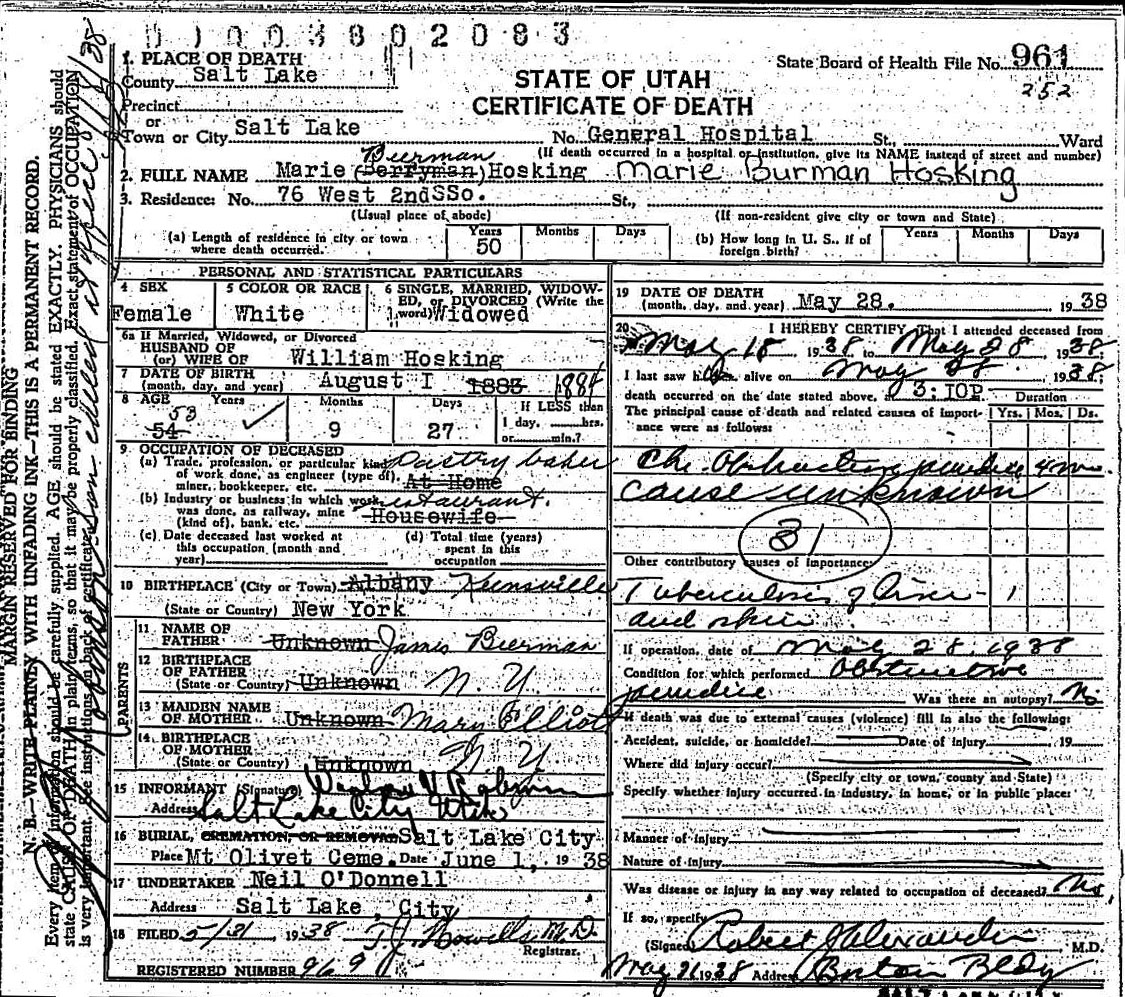 0 0 0 3 8 0 2 0 8 3
1. PLACE OF DEATH
County Salt Lake
Precinct
or
Town or City Salt Lake
STATE OF UTAH
CERTIFICATE OF DEATH
State Board of Health File No. 961
252
No. General Hospital St., Ward
(If death occurred in a hospital or institution, give its NAME instead of street and number)
Bierman
2. FULL NAME Marie (Berryman) Hosking Marie Burman Hosking
3. Residence: No. 76 West 2ndSSo. St.,
(Usual place of abode) (If non-resident give city or town and State)
(a) Length of residence in city or town where death occurred. Years 50 Months Days
(b) How long in U. S., if of foreign birth? Years Months Days
PERSONAL AND STATISTICAL PARTICULARS
4 SEX Female
5 COLOR OR RACE White
6 SINGLE, MARRIED, WIDOWED, or DIVORCED (Write the word) Widowed
6a If Married, Widowed, or Divorced
HUSBAND OF
(or) WIFE OF William Hosking
7 DATE OF BIRTH
(month, day, and year) August I 1883 1884
8 AGE Years 53 54 Months 9 Days 27 If LESS than
1 day, hrs.
or min.?
9 OCCUPATION OF DECEASED
(a) Trade, profession, or particular kind Pastry baker
of work done, as engineer (type of), At Home
miner, bookkeeper, etc.
(b) Industry or business in which work restaurant.
was done, as railway, mine Housewife
(kind of), bank, etc.
(c) Date deceased last worked at this occupation (month and year)
(d) Total time (years) spent in this occupation
10 BIRTHPLACE (City or Town) Albany
(State or Country) New York
PARENTS
11 NAME OF
FATHER Unknown James Bierman
12 BIRTHPLACE
OF FATHER
(State or Country) Unknown N. Y.
13 MAIDEN NAME
OF MOTHER Unknown Mary Elliott
14 BIRTHPLACE
OF MOTHER
(State or Country) Unknown N. Y
15 INFORMANT (Signature)
Address Salt Lake City Utah
16 BURIAL, CREMATION, OR REMOVAL Salt Lake City
Place Mt Olivet Ceme. Date June 1, 1938
17 UNDERTAKER Neil O'Donnell
Address Salt Lake, City
18 FILED 5/31 1938 T.J. Howells M.D.
Registrar.
REGISTERED NUMBER 969
19 DATE OF DEATH
(month, day, and year) May 28. 1938
20 I HEREBY CERTIFY, That I attended deceased from
May 18 1938 to May 28 1938;
I last saw her alive on May 28 1938;
death occurred on the date stated above, 3:10P
The principal cause of death and related causes of importance were as follows:
Duration
Yrs. Mos. Ds.
Chr. Obstructive jaundice 4 mo.
cause unknown
31
Other contributory causes of importance
Tuberculosis of liver 1
and skin
If operation, date of May 28, 1938
Condition for which performed Obstructive
jaundice Was there an autopsy? No
If death was due to external causes (violence) fill in also the following:
Accident, suicide, or homicide? Date of injury 19
Where did injury occur?
(Specify city or town, county and State)
Specify whether injury occurred in industry, in home, or in public place:
Manner of injury
Nature of injury
Was disease or injury in any way related to occupation of deceased? No
If so, specify
(Signed) Robert J Alexander M.D.
May 31 1938 Address Boston Bldg
MARGIN RESERVED FOR BINDING
N. B.—WRITE PLAINLY WITH UNFADING INK—THIS IS A PERMANENT RECORD.
Every item of information should be carefully supplied. AGE should be stated EXACTLY. PHYSICIANS should
state CAUSE OF DEATH in plain terms, so that it may be properly classified. Exact statement of OCCUPATION
is very important. See instructions on back of certificate.